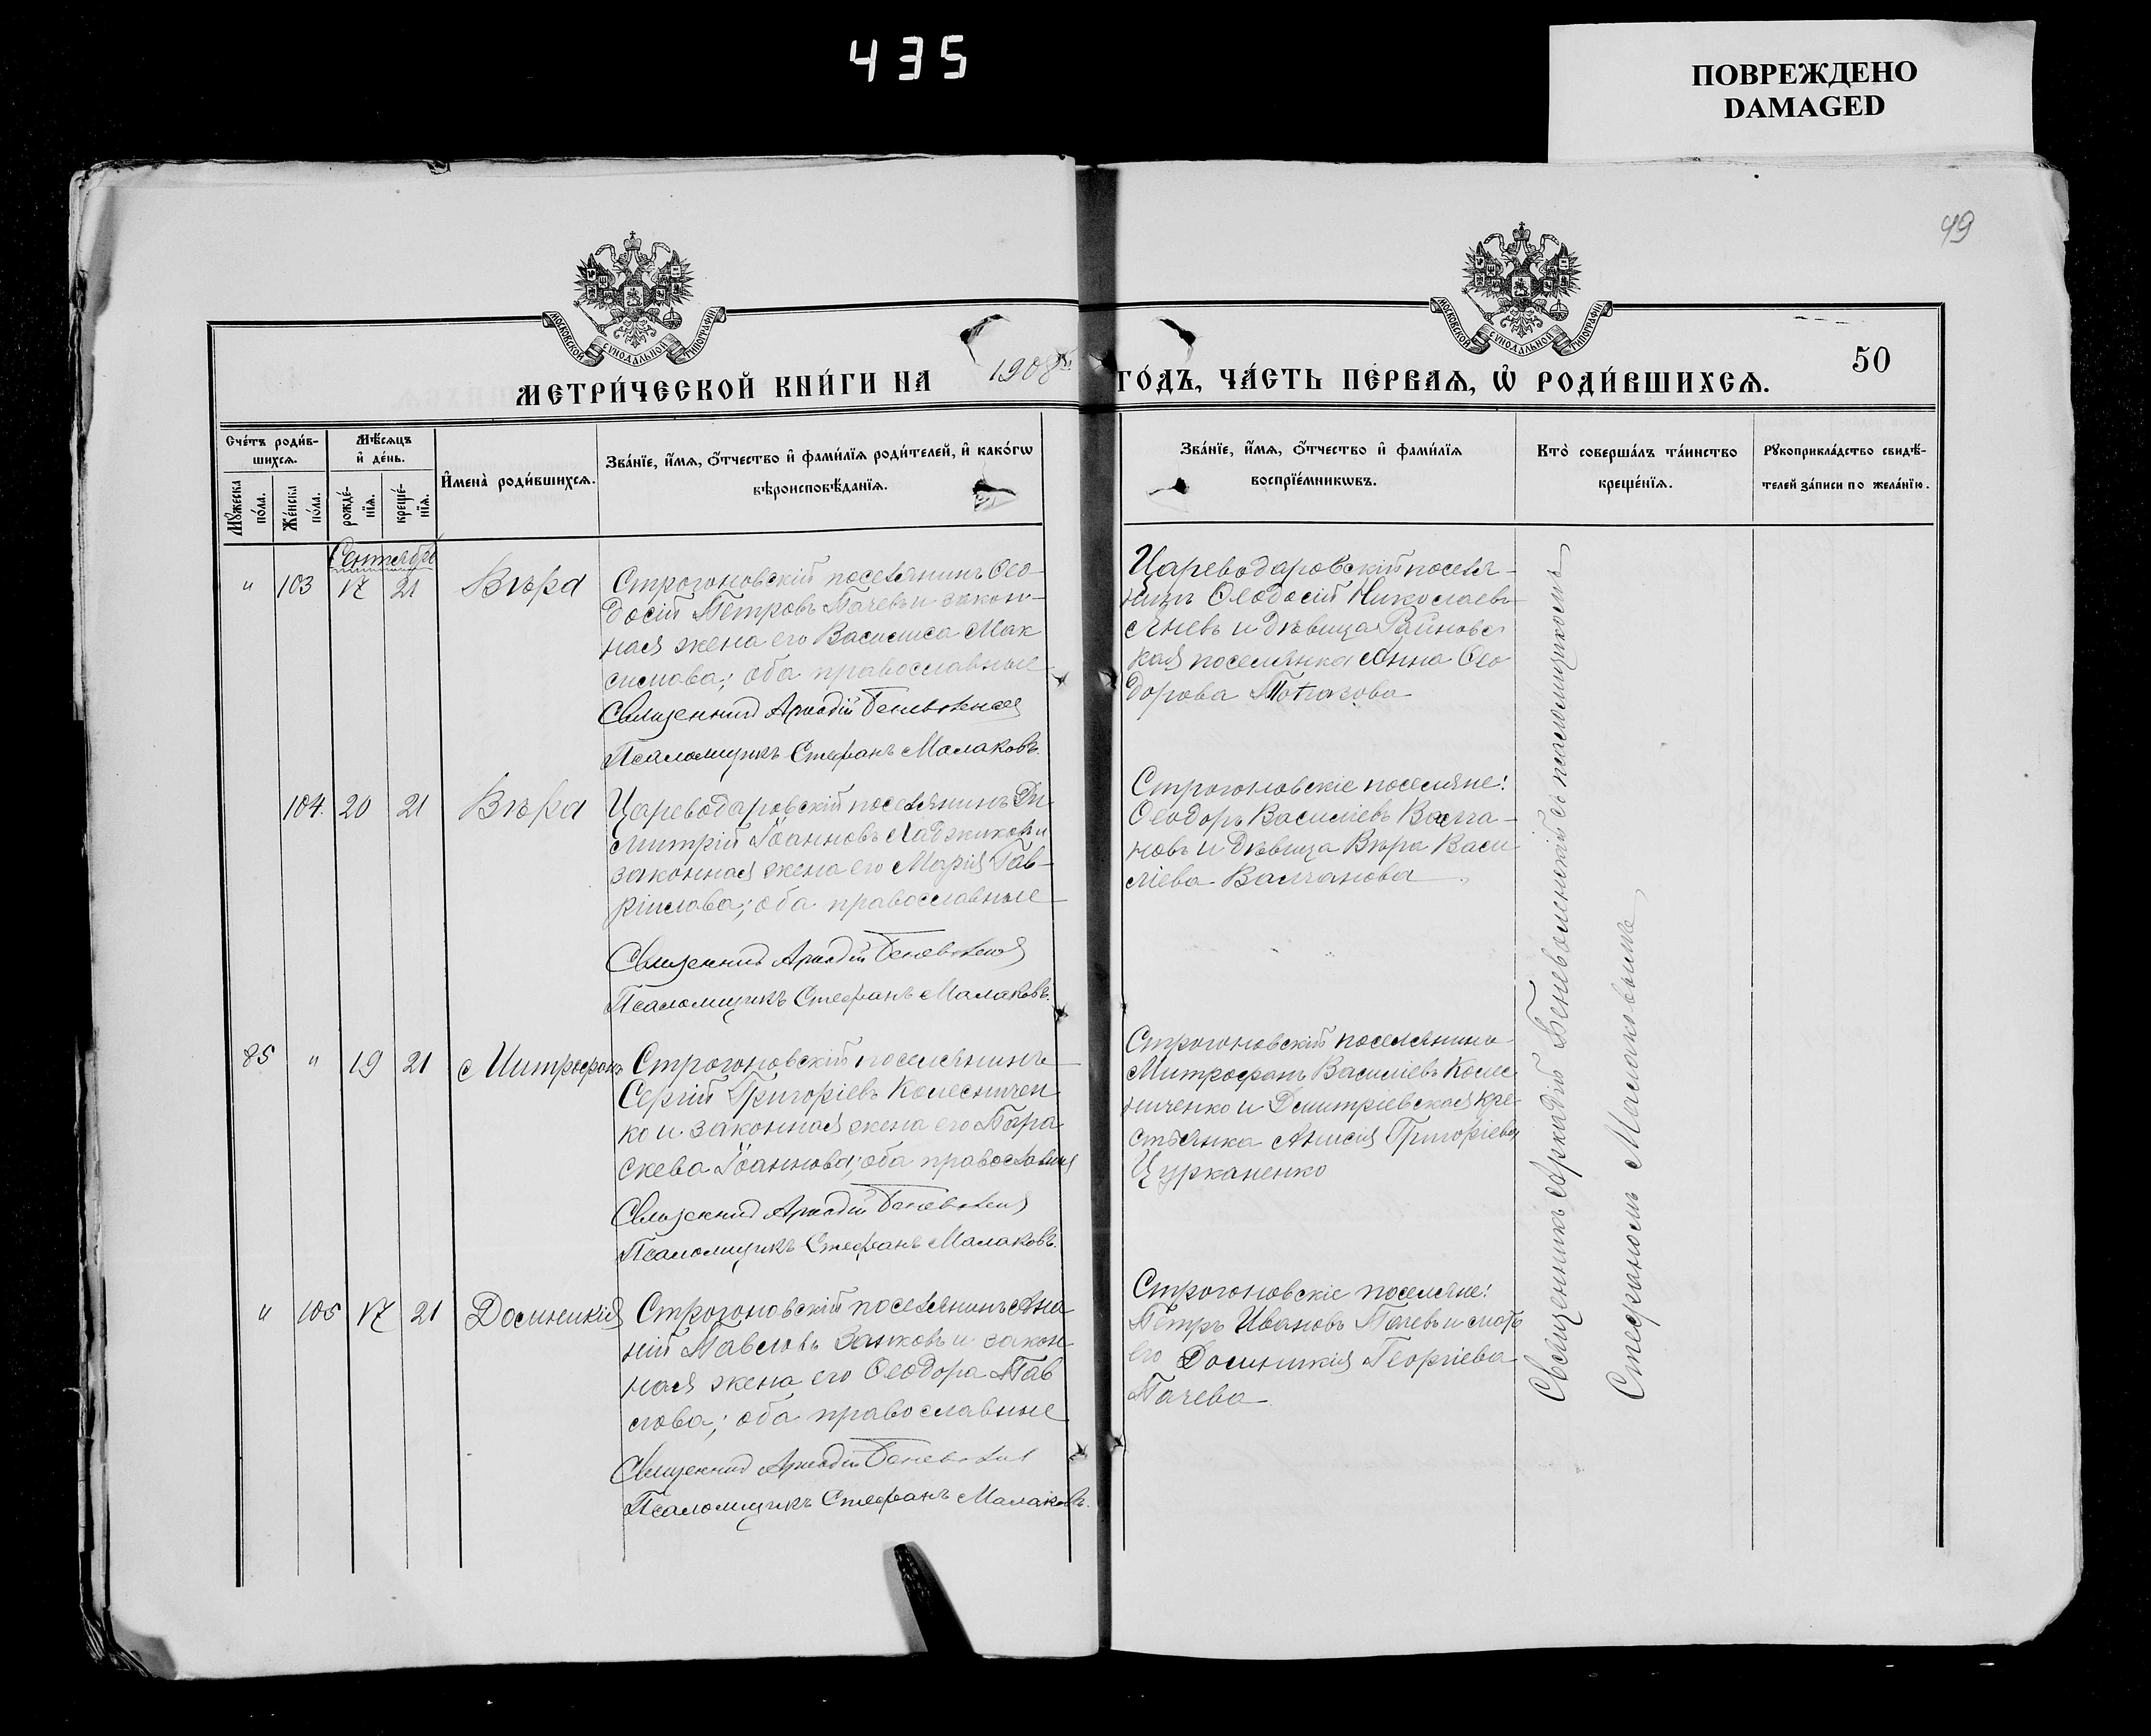 435
ПОВРЕЖДЕНО
DAMAGED
49
МОСКОВСКОЙ СѴНОДАЛЬНОЙ ТИПОГРАФІИ
МОСКОВСКОЙ СѴНОДАЛЬНОЙ ТИПОГРАФІИ
МЕТРИ́ЧЕСКОЙ КНИ́ГИ НА 1908 ГО́ДЪ, ЧА́СТЬ ПЕ́РВАѦ, Ѡ҆ РОДИ́ВШИХСѦ.
50
Сче́тъ роди́в-
шихсѧ.
Мꙋ́жеска по́ла.
Же́нска по́ла.
Мѣ́сѧцъ
и҆ де́нь.
рожде́-нїѧ.
креще́-нїѧ.
И҆мена̀ роди́вшихсѧ.
Зва́нїе, и҆́мѧ, ѻ҆́тчество и҆ фами́лїѧ роди́телей, и҆ како́гѡ
вѣроисповѣ́данїѧ.
Зва́нїе, и҆́мѧ, ѻ҆́тчество и҆ фами́лїѧ
воспрїе́мникѡвъ.
Кто̀ соверша́лъ та́инство
креще́нїѧ.
Рꙋкоприкла́дство свидѣ́-
телей за́писи по жела́нїю.
Сентябрь
" 103 17 21 Вѣра
Строгоновскій поселянинъ Ѳео-
досій Петровъ Пачевъ и закон-
ная жена его Василиса Мак
симова; оба православные
Священникъ Аркадій Беневоленскій
Псаломщикъ Стефанъ Малаковъ.
Цареводаровскій поселя-
нинъ Ѳеодосій Николаевъ
Яневъ и дѣвица Райновс
кая поселянка Анна Ѳео
дорова
104. 20 21 Вѣра
Цареводаровскій поселянинъ Ди-
митрій Іоанновъ Хаджиковъ и
законная жена его Марія Гав-
ріилова; оба православные
Священникъ Аркадій Беневоленскій
Псаломщикъ Стефанъ Малаковъ.
Строгоновскіе поселяне:
Ѳеодоръ Василіевъ Валча-
новъ и дѣвица Вѣра Васи
ліева Валчанова
85 " 19 21 Митрофанъ
Строгоновскій поселянинъ
Сергій Григоріевъ Колесничен
ко и законная жена его Пара
скева Іоаннова; оба православныя
Священникъ Аркадій Беневоленскій
Псаломщикъ Стефанъ Малаковъ.
Строгоновскій поселянинъ
Митрофанъ Василіевъ Колес
ниченко и Димитріевская кре-
стьянка Анисія Григоріева
Цурканенко
" 105 17 21 Домникія
Строгоновскій поселянинъ Ана
ній Павловъ Занковъ и закон
ная жена его Ѳеодора Пав
лова; оба православные
Священникъ Аркадій Беневоленскій
Псаломщикъ Стефанъ Малаковъ.
Строгоновскіе поселяне:
Петръ Ивановъ Пачевъ и мать
его Домникія Георгіева
Пачева
Священникъ Аркадій Беневоленскій съ псаломщикомъ
Стефаномъ Малаковымъ